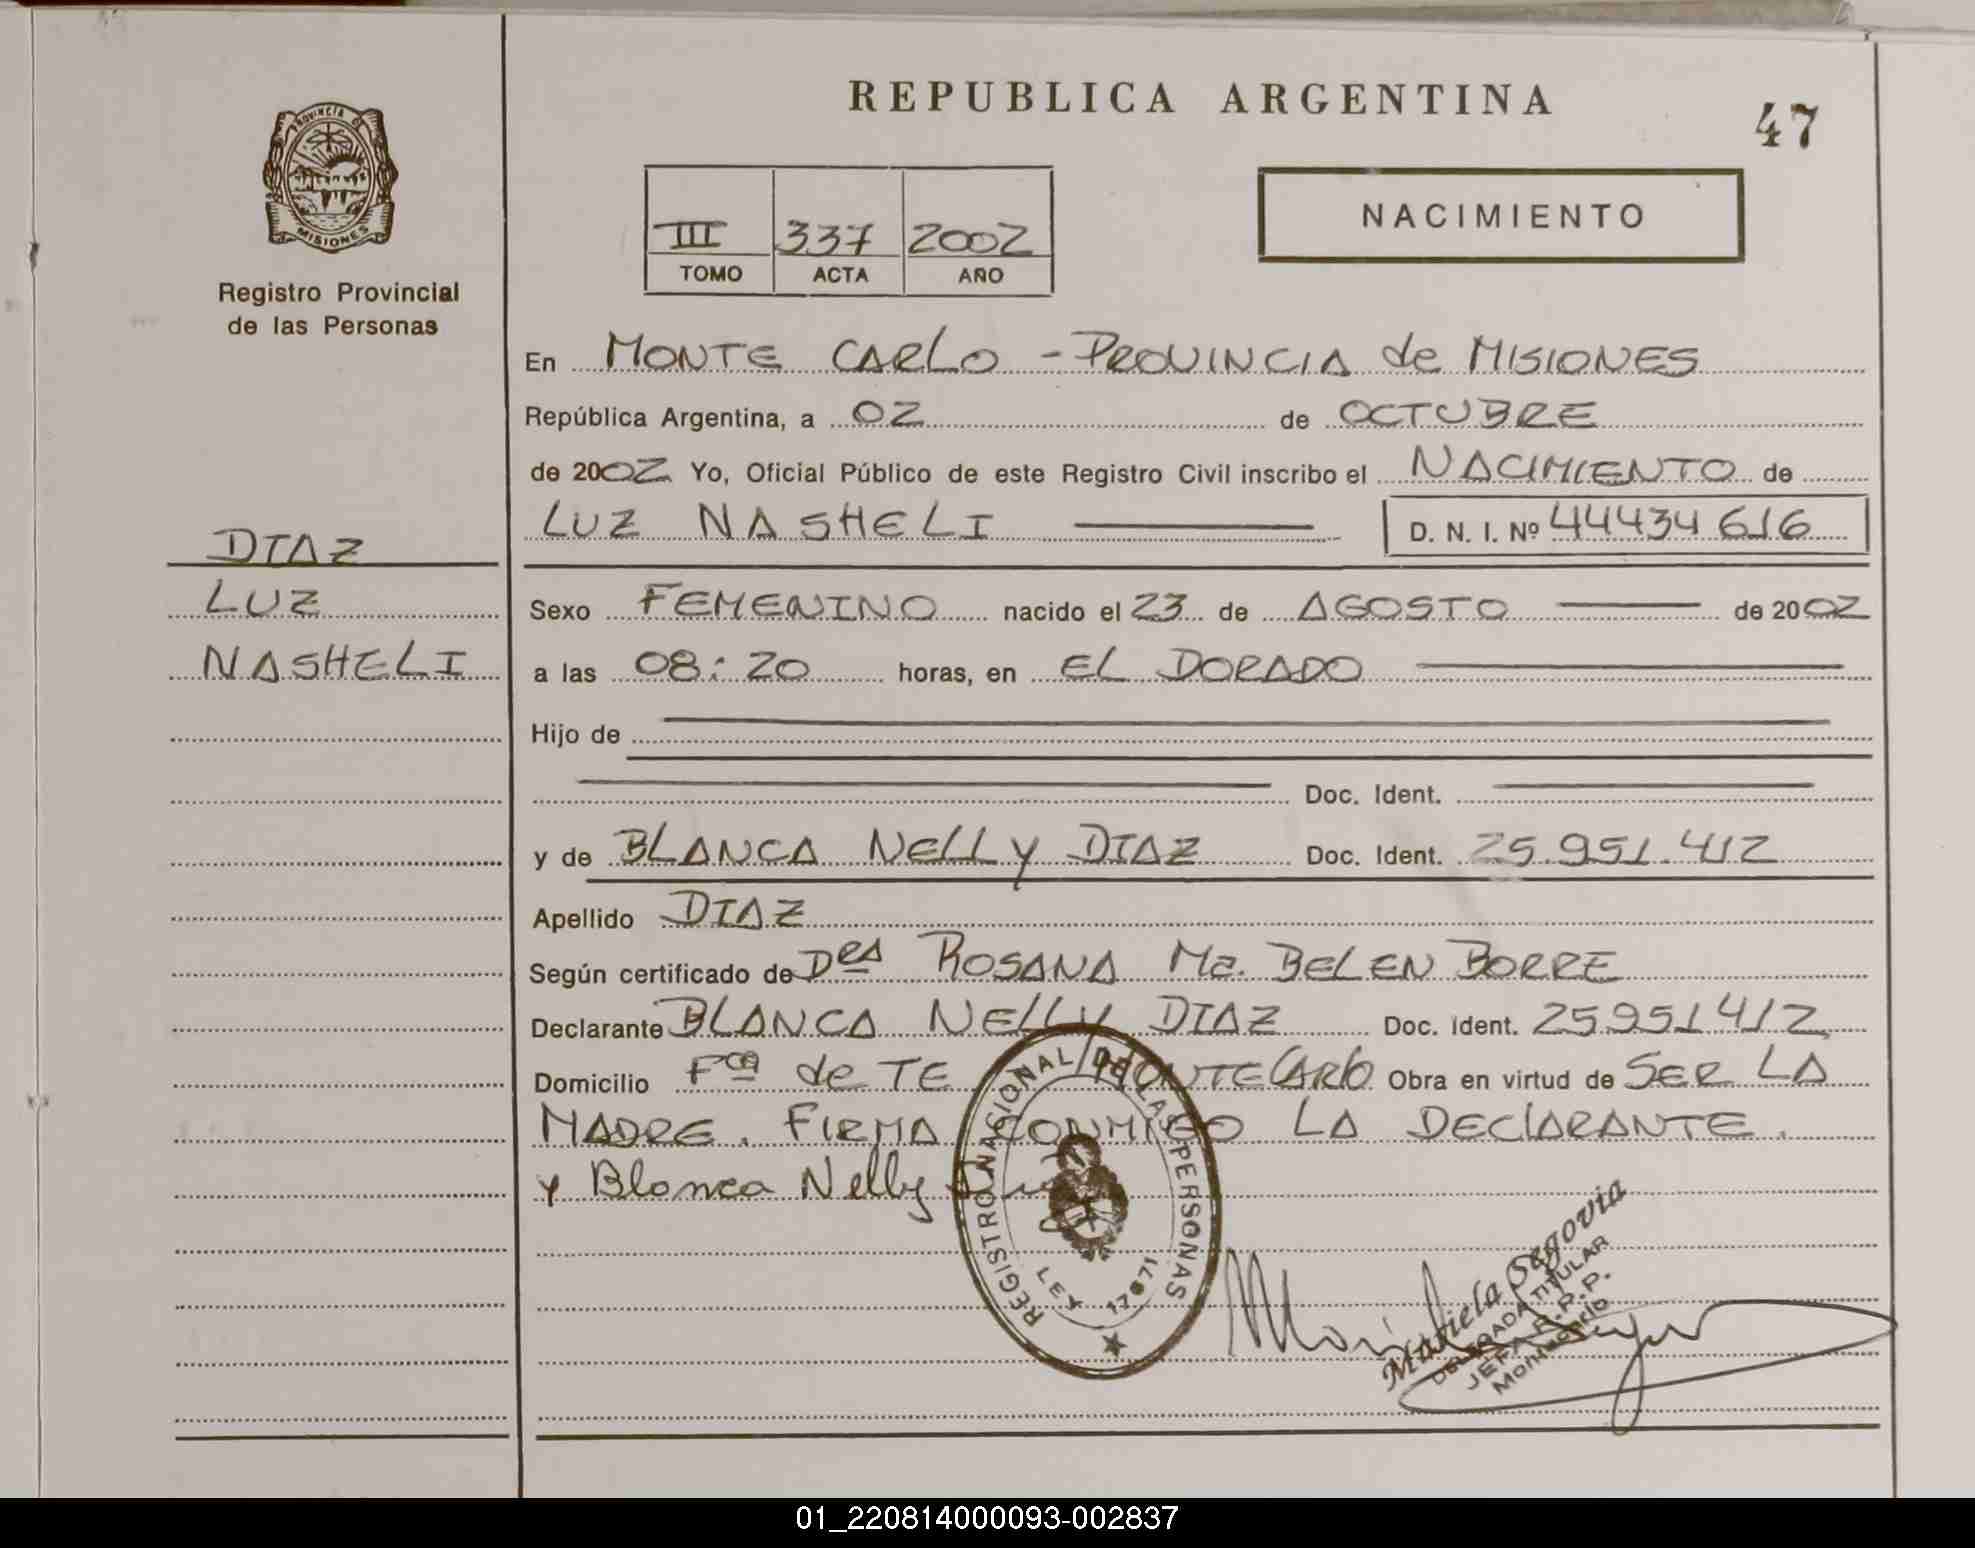 REPUBLICA ARGENTINA
47
PROVINCIA DE
MISIONES
Registro Provincial
de las Personas
III 337 2002
TOMO ACTA AÑO
NACIMIENTO
En MONTE CARLO - PROVINCIA de MISIONES
República Argentina, a 02 de OCTUBRE
de 2002 Yo, Oficial Público de este Registro Civil inscribo el NACIMIENTO de
LUZ NASHELI D. N. I. Nº 44434616
DIAZ
LUZ
NASHELI
Sexo FEMENINO nacido el 23 de AGOSTO de 2002
a las 08:20 horas, en EL DORADO
Hijo de
Doc. Ident.
y de BLANCA NELLY DIAZ Doc. Ident. 25.951.412
Apellido DIAZ
Según certificado de Dra ROSANA Ma. BELEN BORRE
Declarante BLANCA NELLY DIAZ Doc. Ident. 25951412
Domicilio Fca de TE MONTECARLO Obra en virtud de SER LA
MADRE. FIRMA CONMIGO LA DECLARANTE.
y Blanca Nelly Diaz
REGISTRO NACIONAL DE LAS PERSONAS
LEY 17671
Mariela Segovia
DELEGADA TITULAR
JEFA R.P.P.
Montecarlo
01_220814000093-002837